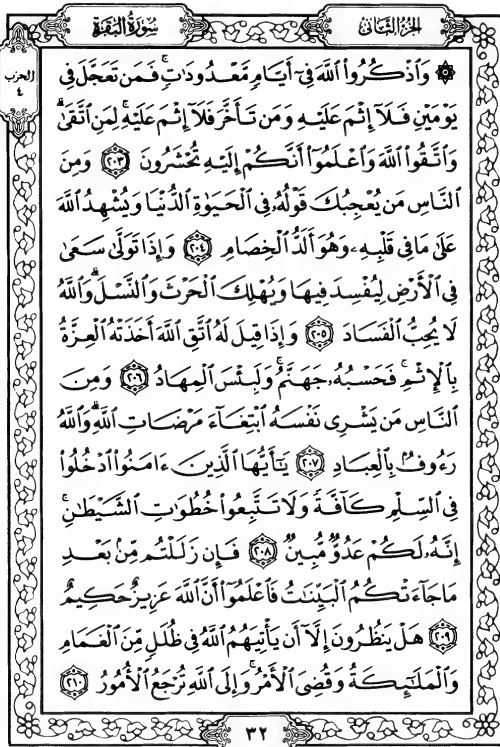 سُورَةُ البَقَرَةِ
الجُزْءُ الثَّانِي
الحزب
٤
۞ وَٱذۡكُرُواْ ٱللَّهَ فِيٓ أَيَّامٖ مَّعۡدُودَٰتٖۚ فَمَن تَعَجَّلَ فِي
يَوۡمَيۡنِ فَلَآ إِثۡمَ عَلَيۡهِ وَمَن تَأَخَّرَ فَلَآ إِثۡمَ عَلَيۡهِۚ لِمَنِ ٱتَّقَىٰۗ
وَٱتَّقُواْ ٱللَّهَ وَٱعۡلَمُوٓاْ أَنَّكُمۡ إِلَيۡهِ تُحۡشَرُونَ ٢٠٣ وَمِنَ
ٱلنَّاسِ مَن يُعۡجِبُكَ قَوۡلُهُۥ فِي ٱلۡحَيَوٰةِ ٱلدُّنۡيَا وَيُشۡهِدُ ٱللَّهَ
عَلَىٰ مَا فِي قَلۡبِهِۦ وَهُوَ أَلَدُّ ٱلۡخِصَامِ ٢٠٤ وَإِذَا تَوَلَّىٰ سَعَىٰ
فِي ٱلۡأَرۡضِ لِيُفۡسِدَ فِيهَا وَيُهۡلِكَ ٱلۡحَرۡثَ وَٱلنَّسۡلَۚ وَٱللَّهُ
لَا يُحِبُّ ٱلۡفَسَادَ ٢٠٥ وَإِذَا قِيلَ لَهُ ٱتَّقِ ٱللَّهَ أَخَذَتۡهُ ٱلۡعِزَّةُ
بِٱلۡإِثۡمِۚ فَحَسۡبُهُۥ جَهَنَّمُۚ وَلَبِئۡسَ ٱلۡمِهَادُ ٢٠٦ وَمِنَ
ٱلنَّاسِ مَن يَشۡرِي نَفۡسَهُ ٱبۡتِغَآءَ مَرۡضَاتِ ٱللَّهِۚ وَٱللَّهُ
رَءُوفُۢ بِٱلۡعِبَادِ ٢٠٧ يَٰٓأَيُّهَا ٱلَّذِينَ ءَامَنُواْ ٱدۡخُلُواْ
فِي ٱلسِّلۡمِ كَآفَّةٗ وَلَا تَتَّبِعُواْ خُطُوَٰتِ ٱلشَّيۡطَٰنِۚ
إِنَّهُۥ لَكُمۡ عَدُوّٞ مُّبِينٞ ٢٠٨ فَإِن زَلَلۡتُم مِّنۢ بَعۡدِ
مَا جَآءَتۡكُمُ ٱلۡبَيِّنَٰتُ فَٱعۡلَمُوٓاْ أَنَّ ٱللَّهَ عَزِيزٌ حَكِيمٌ
٢٠٩ هَلۡ يَنظُرُونَ إِلَّآ أَن يَأۡتِيَهُمُ ٱللَّهُ فِي ظُلَلٖ مِّنَ ٱلۡغَمَامِ
وَٱلۡمَلَٰٓئِكَةُ وَقُضِيَ ٱلۡأَمۡرُۚ وَإِلَى ٱللَّهِ تُرۡجَعُ ٱلۡأُمُورُ ٢١٠
٣٢